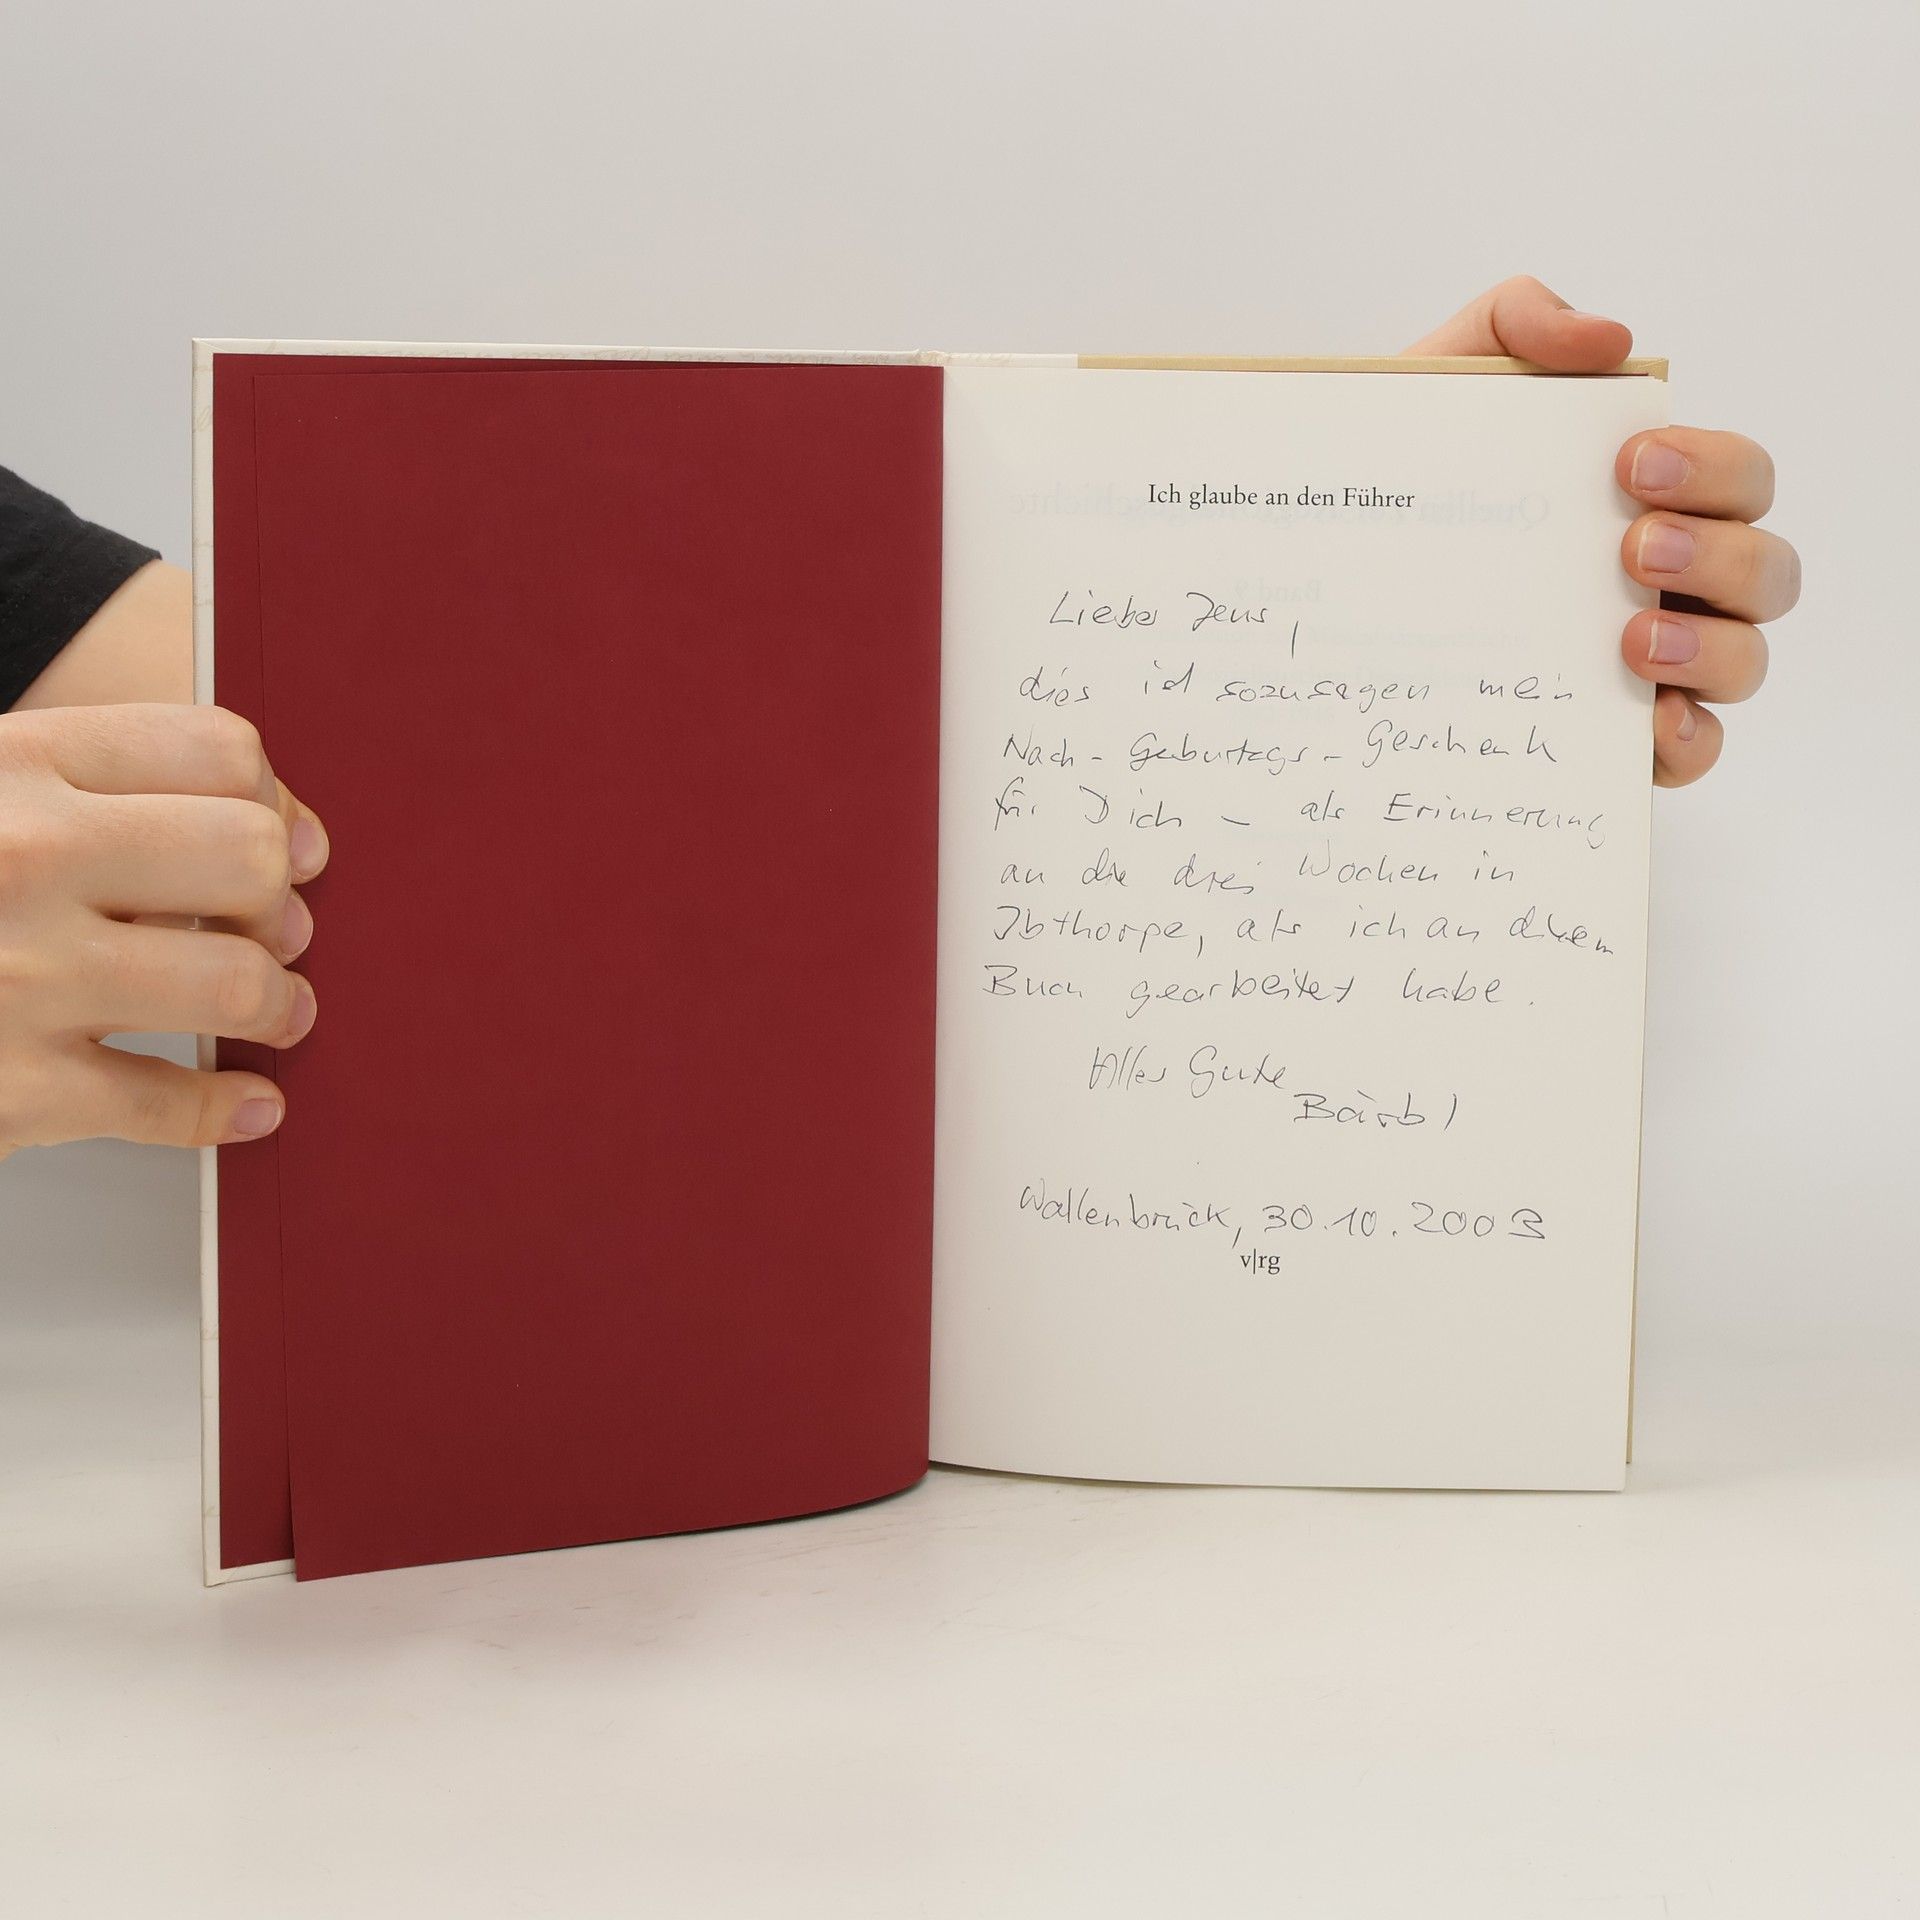 Ich glaube an den Führer
Lieber Jens,
dies ist sozusagen mein
Nach-Geburtags-Geschenk
für Dich – als Erinnerung
an die drei Wochen in
Ibthorpe, als ich an diesem
Buch gearbeitet habe.
Alles Gute
Bärbl
Wallenbrück, 30.10.2003
v|rg